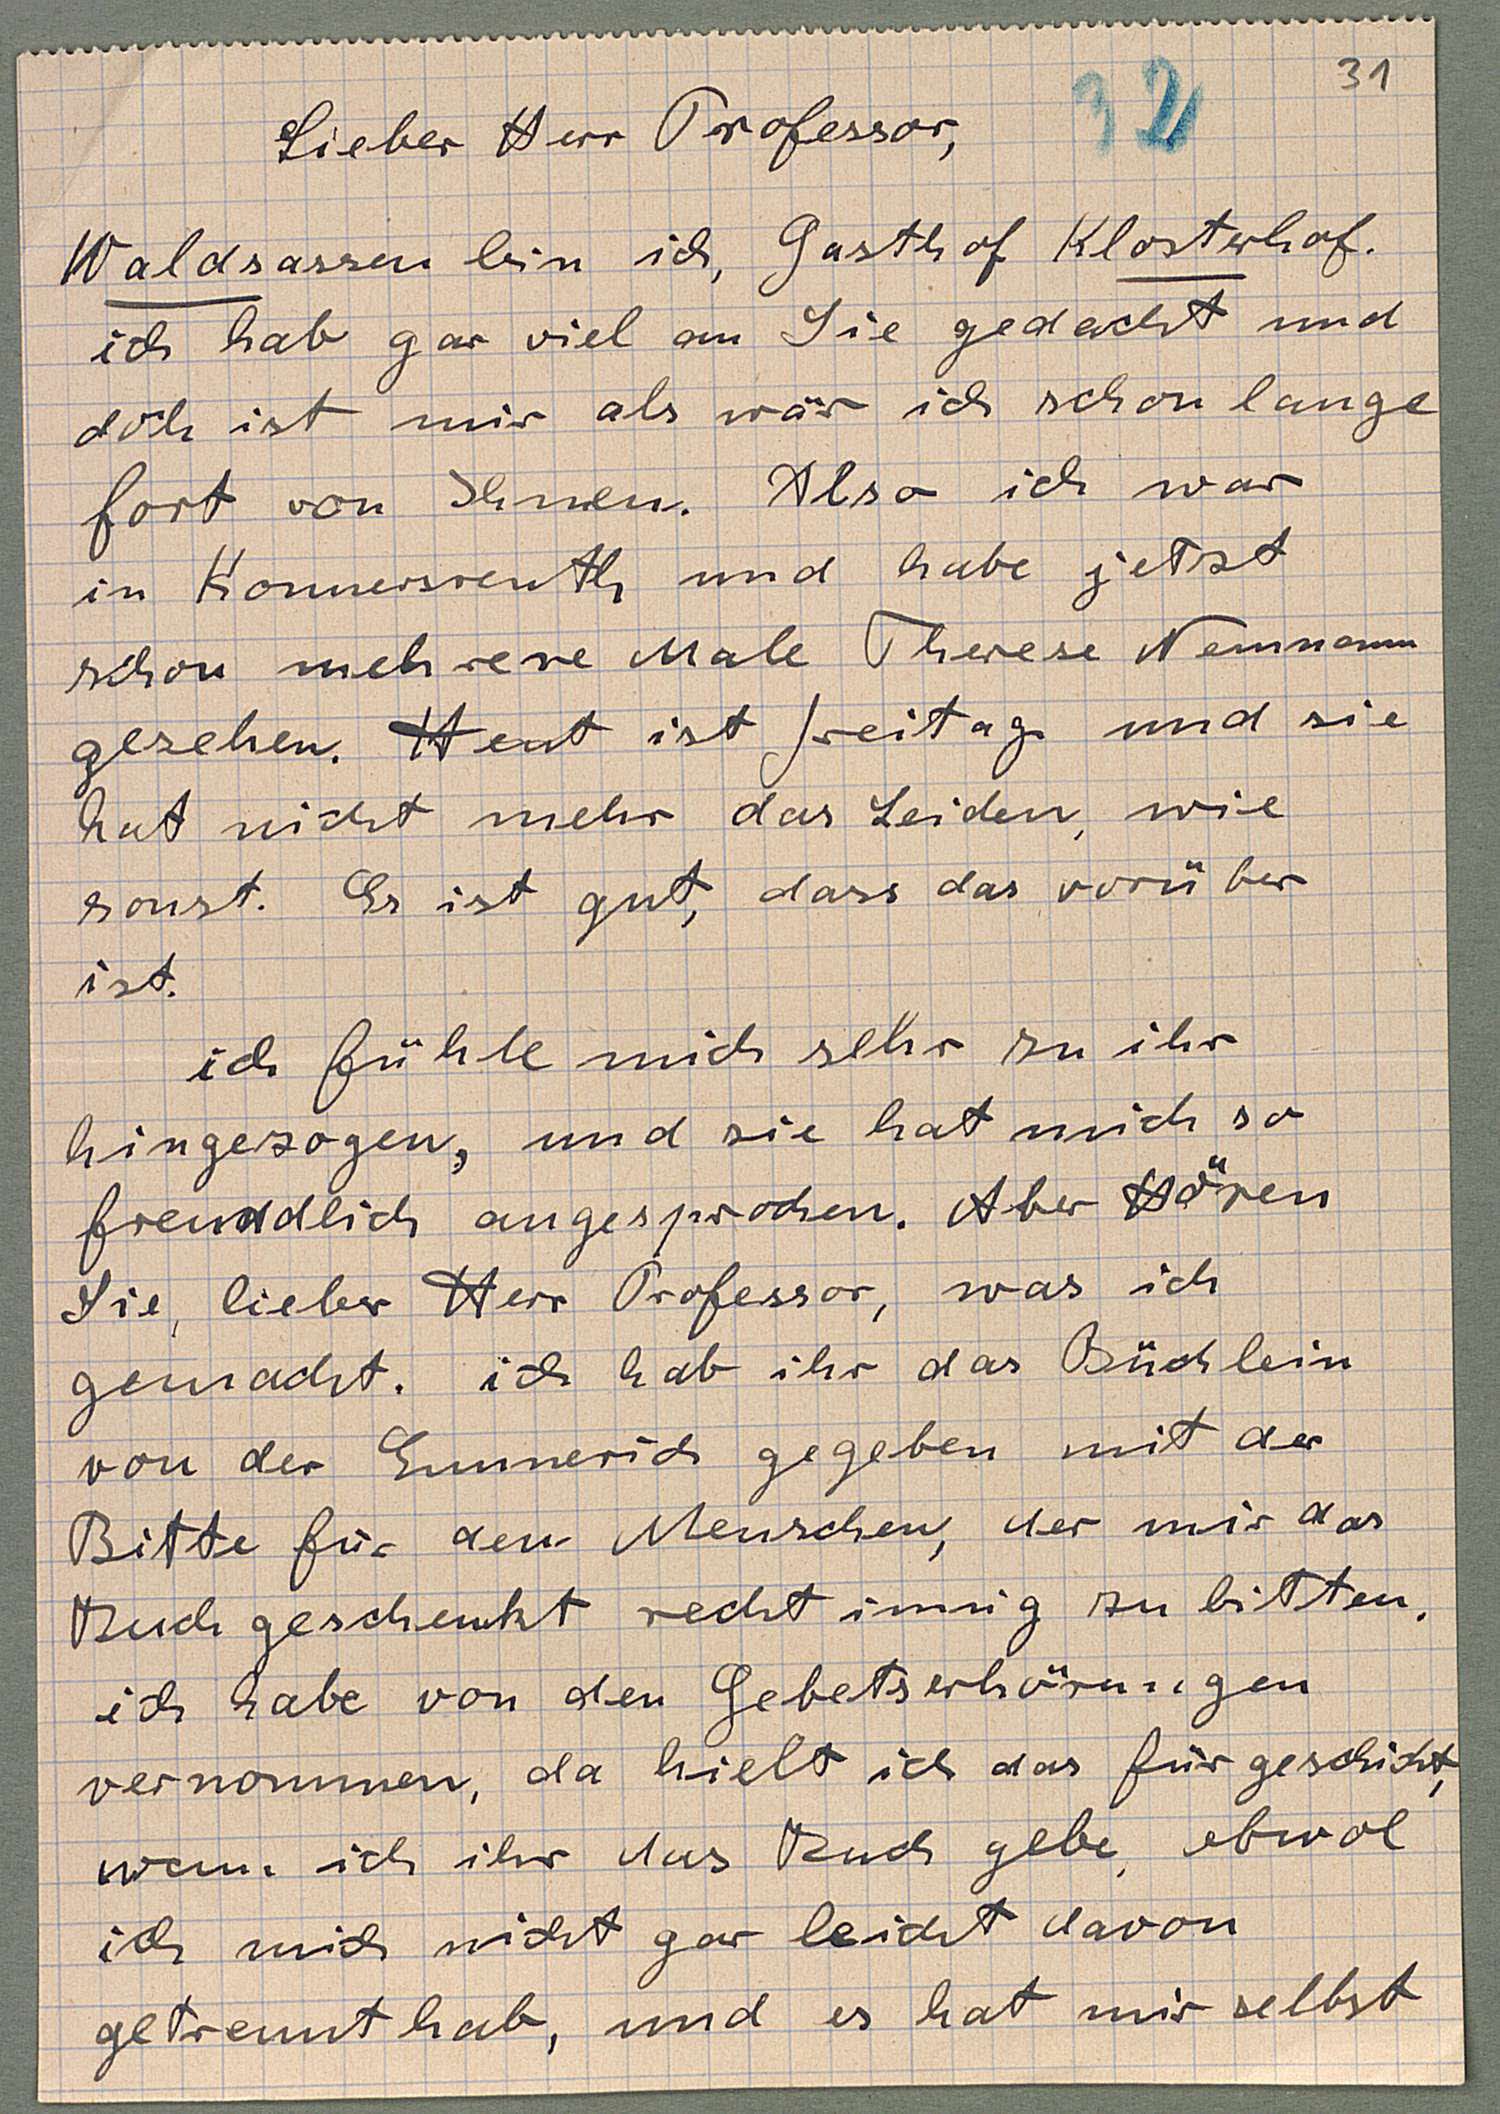 31
32
Lieber Herr Professor,
Waldsassen bin ich, Gasthof Klosterhof.
ich hab gar viel an Sie gedacht und
doch ist mir als wär ich schon lange
fort von Ihnen. Also ich war
in Konnersreuth und habe jetzt
schon mehrere Male Therese Neumann
gesehen. Heut ist Freitag und sie
hat nicht mehr das Leiden, wie
sonst. Es ist gut, dass das vorüber
ist.
ich fühle mich sehr zu ihr
hingezogen, und sie hat mich so
freundlich angesprochen. Aber Hören
Sie, lieber Herr Professor, was ich
gemacht. ich hab ihr das Büchlein
von der Emmerich gegeben mit der
Bitte für den Menschen, der mir das
Buch geschenkt recht innig zu bitten.
ich habe von den Gebetserhörungen
vernommen, da hielt ich das für geschickt,
wenn ich ihr das Buch gebe, obwol
ich mich nicht gar leicht davon
getrennt hab, und es hat mir selbst